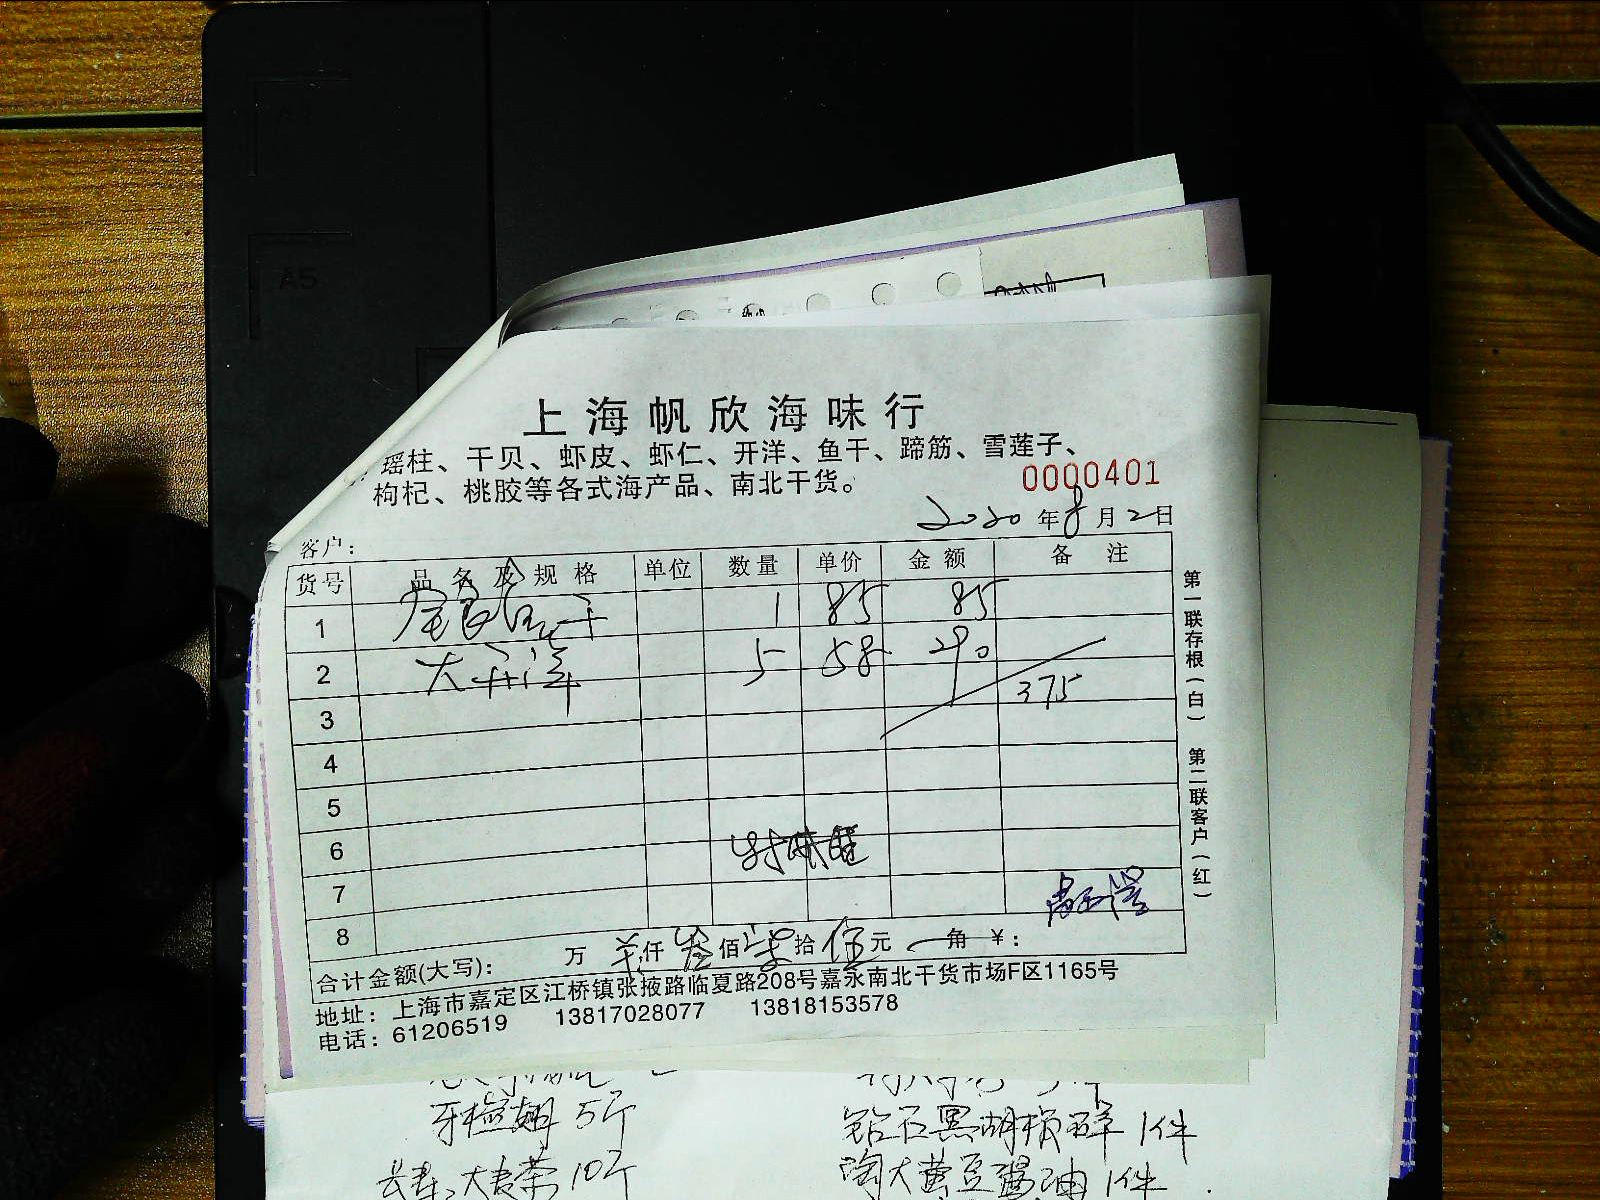 A5
上海帆欣海味行
瑶柱、干贝、虾皮、虾仁、开洋、鱼干、蹄筋、雪莲子、
枸杞、桃胶等各式海产品、南北干货。
0000401
2020年8月2日
客户：
货号 品名及规格 单位 数量 单价 金额 备注
1 1 85 85
2 大开洋 5 58 290
375
3
4
5
6
7
8
合计金额(大写): 万 仟 叁佰柒拾伍元 角 ¥:
地址：上海市嘉定区江桥镇张掖路临夏路208号嘉永南北干货市场F区1165号
电话：61206519 13817028077 13818153578
第一联存根(白) 第二联客户(红)
5斤
钻石黑胡椒碎 1件
大麦茶 10斤
淘大黄豆酱油 1件